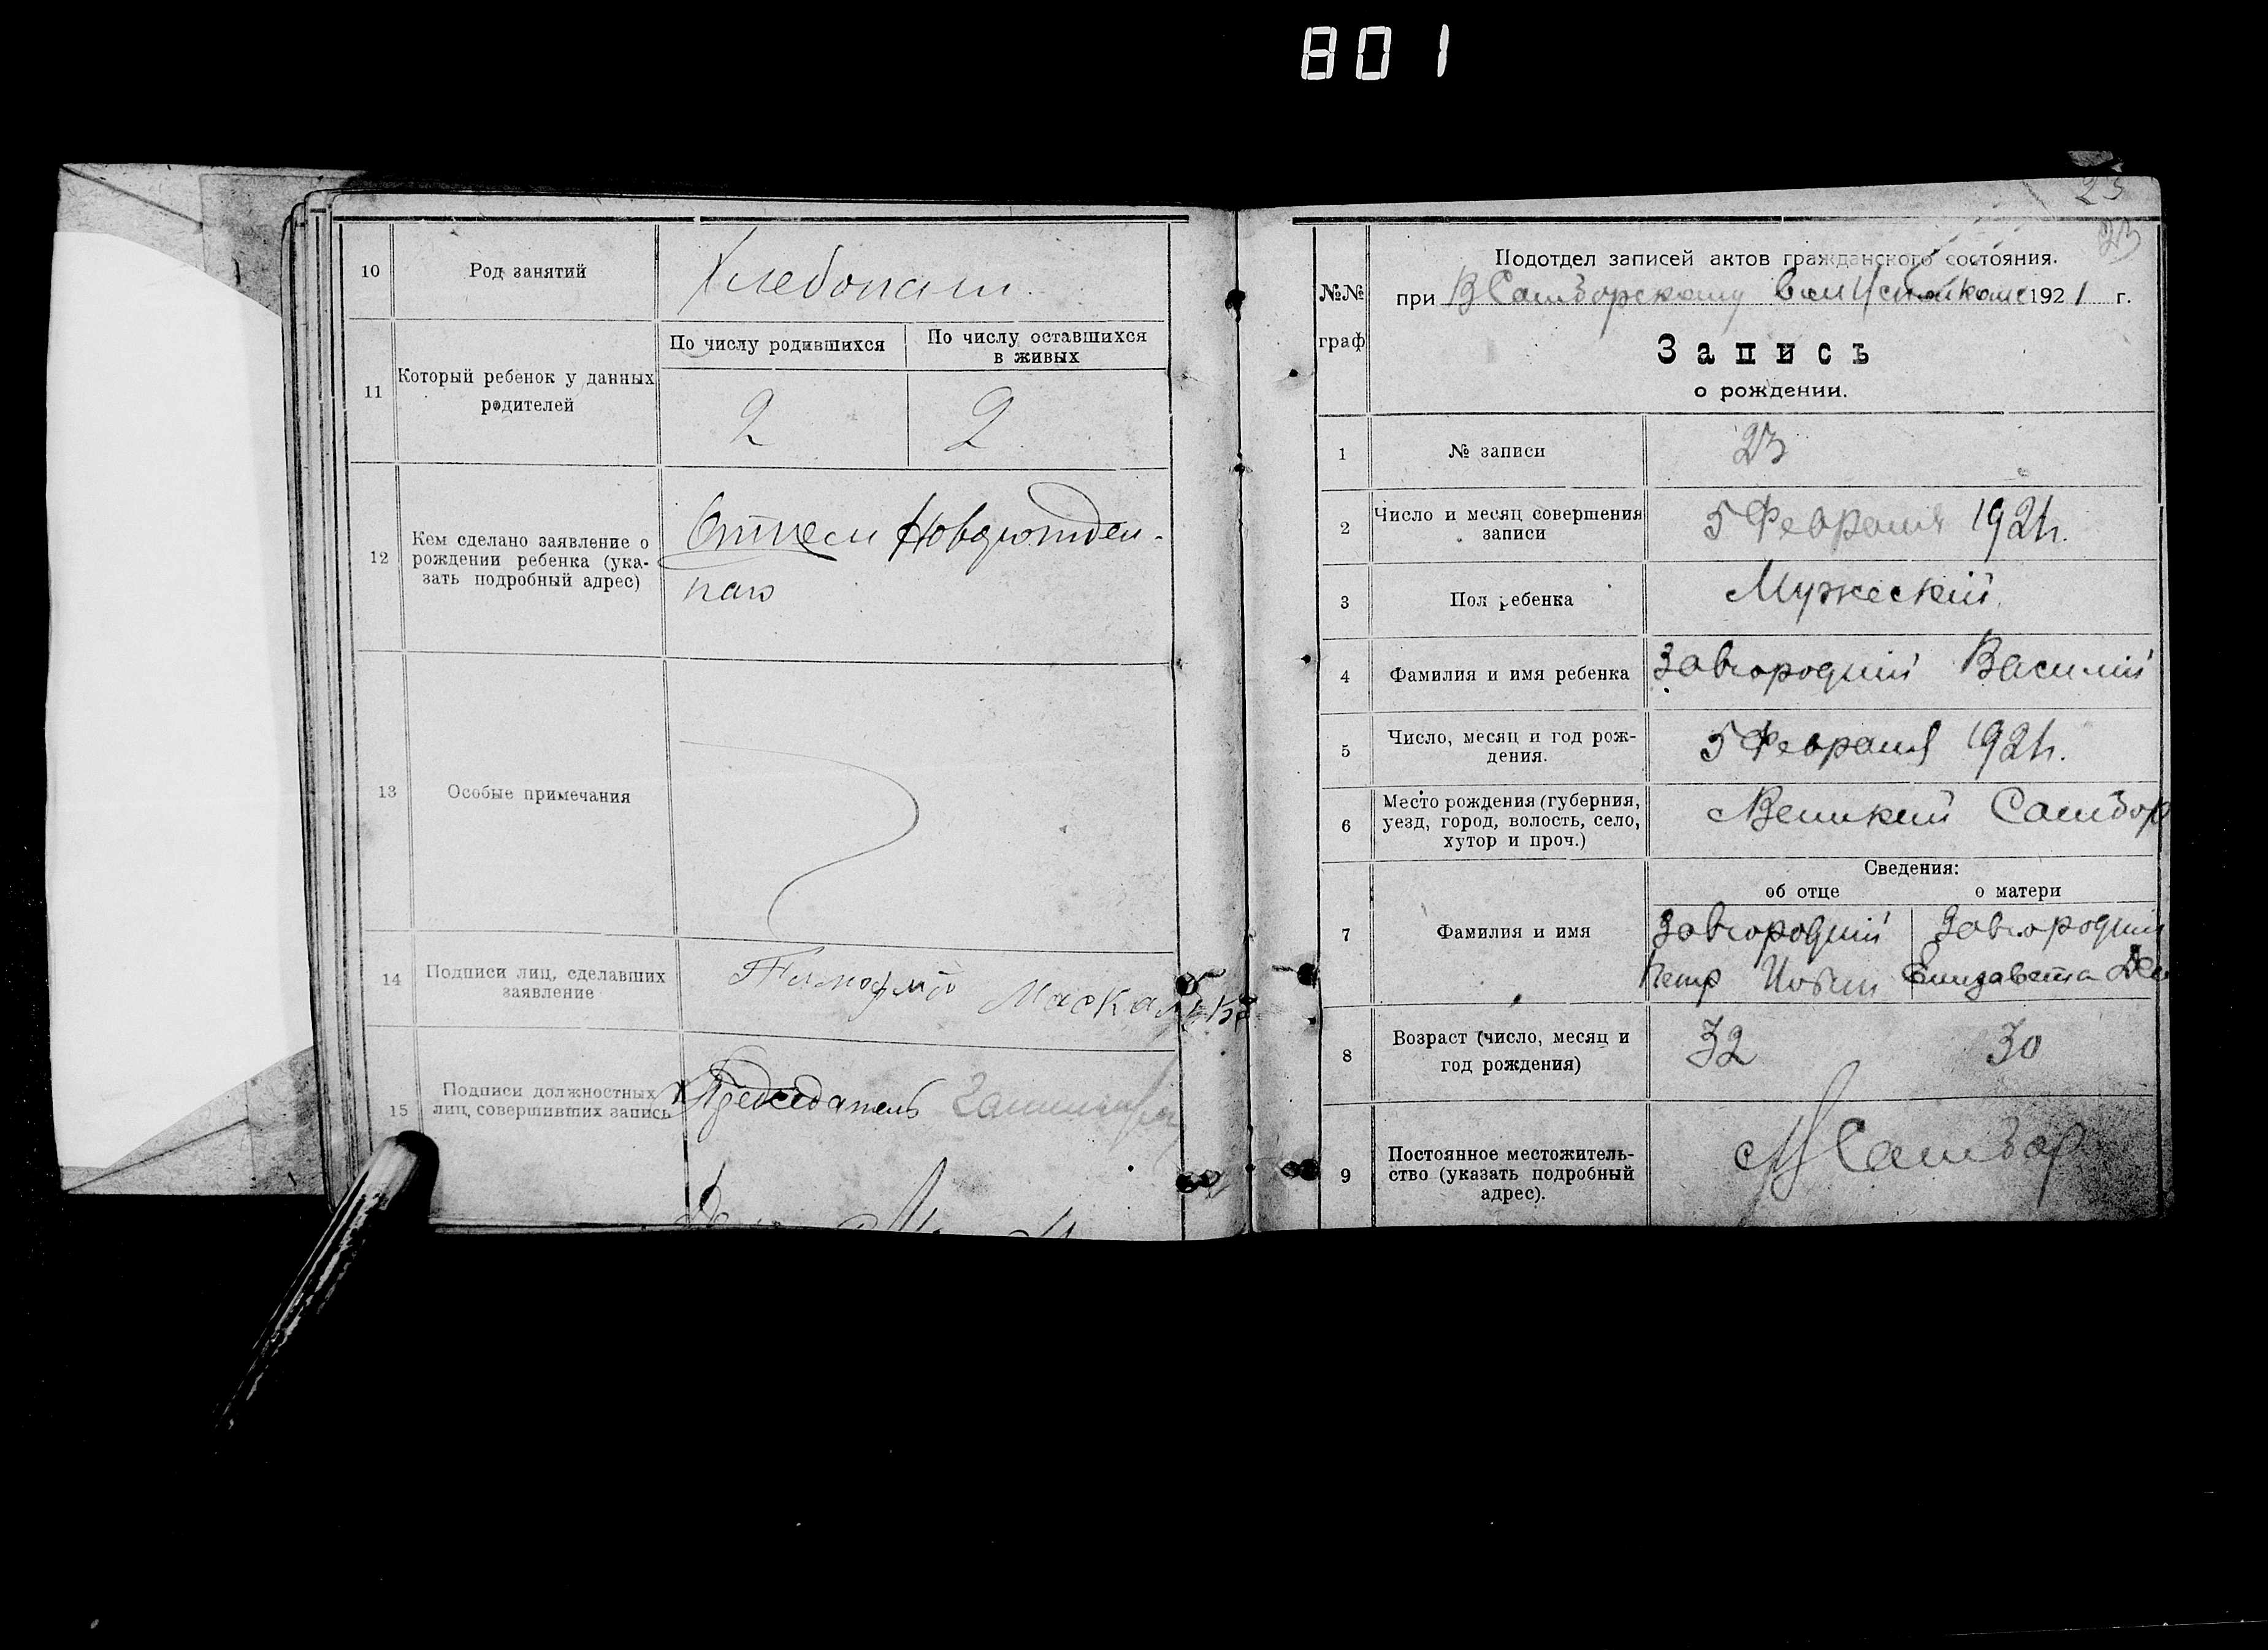 801
10
Род занятий
Хлебопаш.
11
Который ребенок у данных
родителей
По числу родившихся
По числу оставшихся
в живых
2
2
12
Кем сделано заявление о
рождении ребенка (ука-
зать подробный адрес)
Отцем Новорожден-
наго
13
Особые примечания
14
Подписи лиц, сделавших
заявление
15
Подписи должностных
лиц, совершивших запись
Председатель
23
23
№№
граф
Подотдел записей актов гражданского состояния.
при 1921 г.
Запись
о рождении.
1
№ записи
23
2
Число и месяц совершения
записи
5 Февраля 1921г.
3
Пол ребенка
Мужеский
4
Фамилия и имя ребенка
Завгородний Василий
5
Число, месяц и год рож-
дения.
5 Февраля 1921г.
6
Место рождения (губерния,
уезд, город, волость, село,
хутор и проч.)
Великий
Сведения:
об отце
о матери
7
Фамилия и имя
Завгородний
Петр
Завгородний
Елизавета
8
Возраст (число, месяц и
год рождения)
32
30
9
Постоянное местожитель-
ство (указать подробный
адрес).